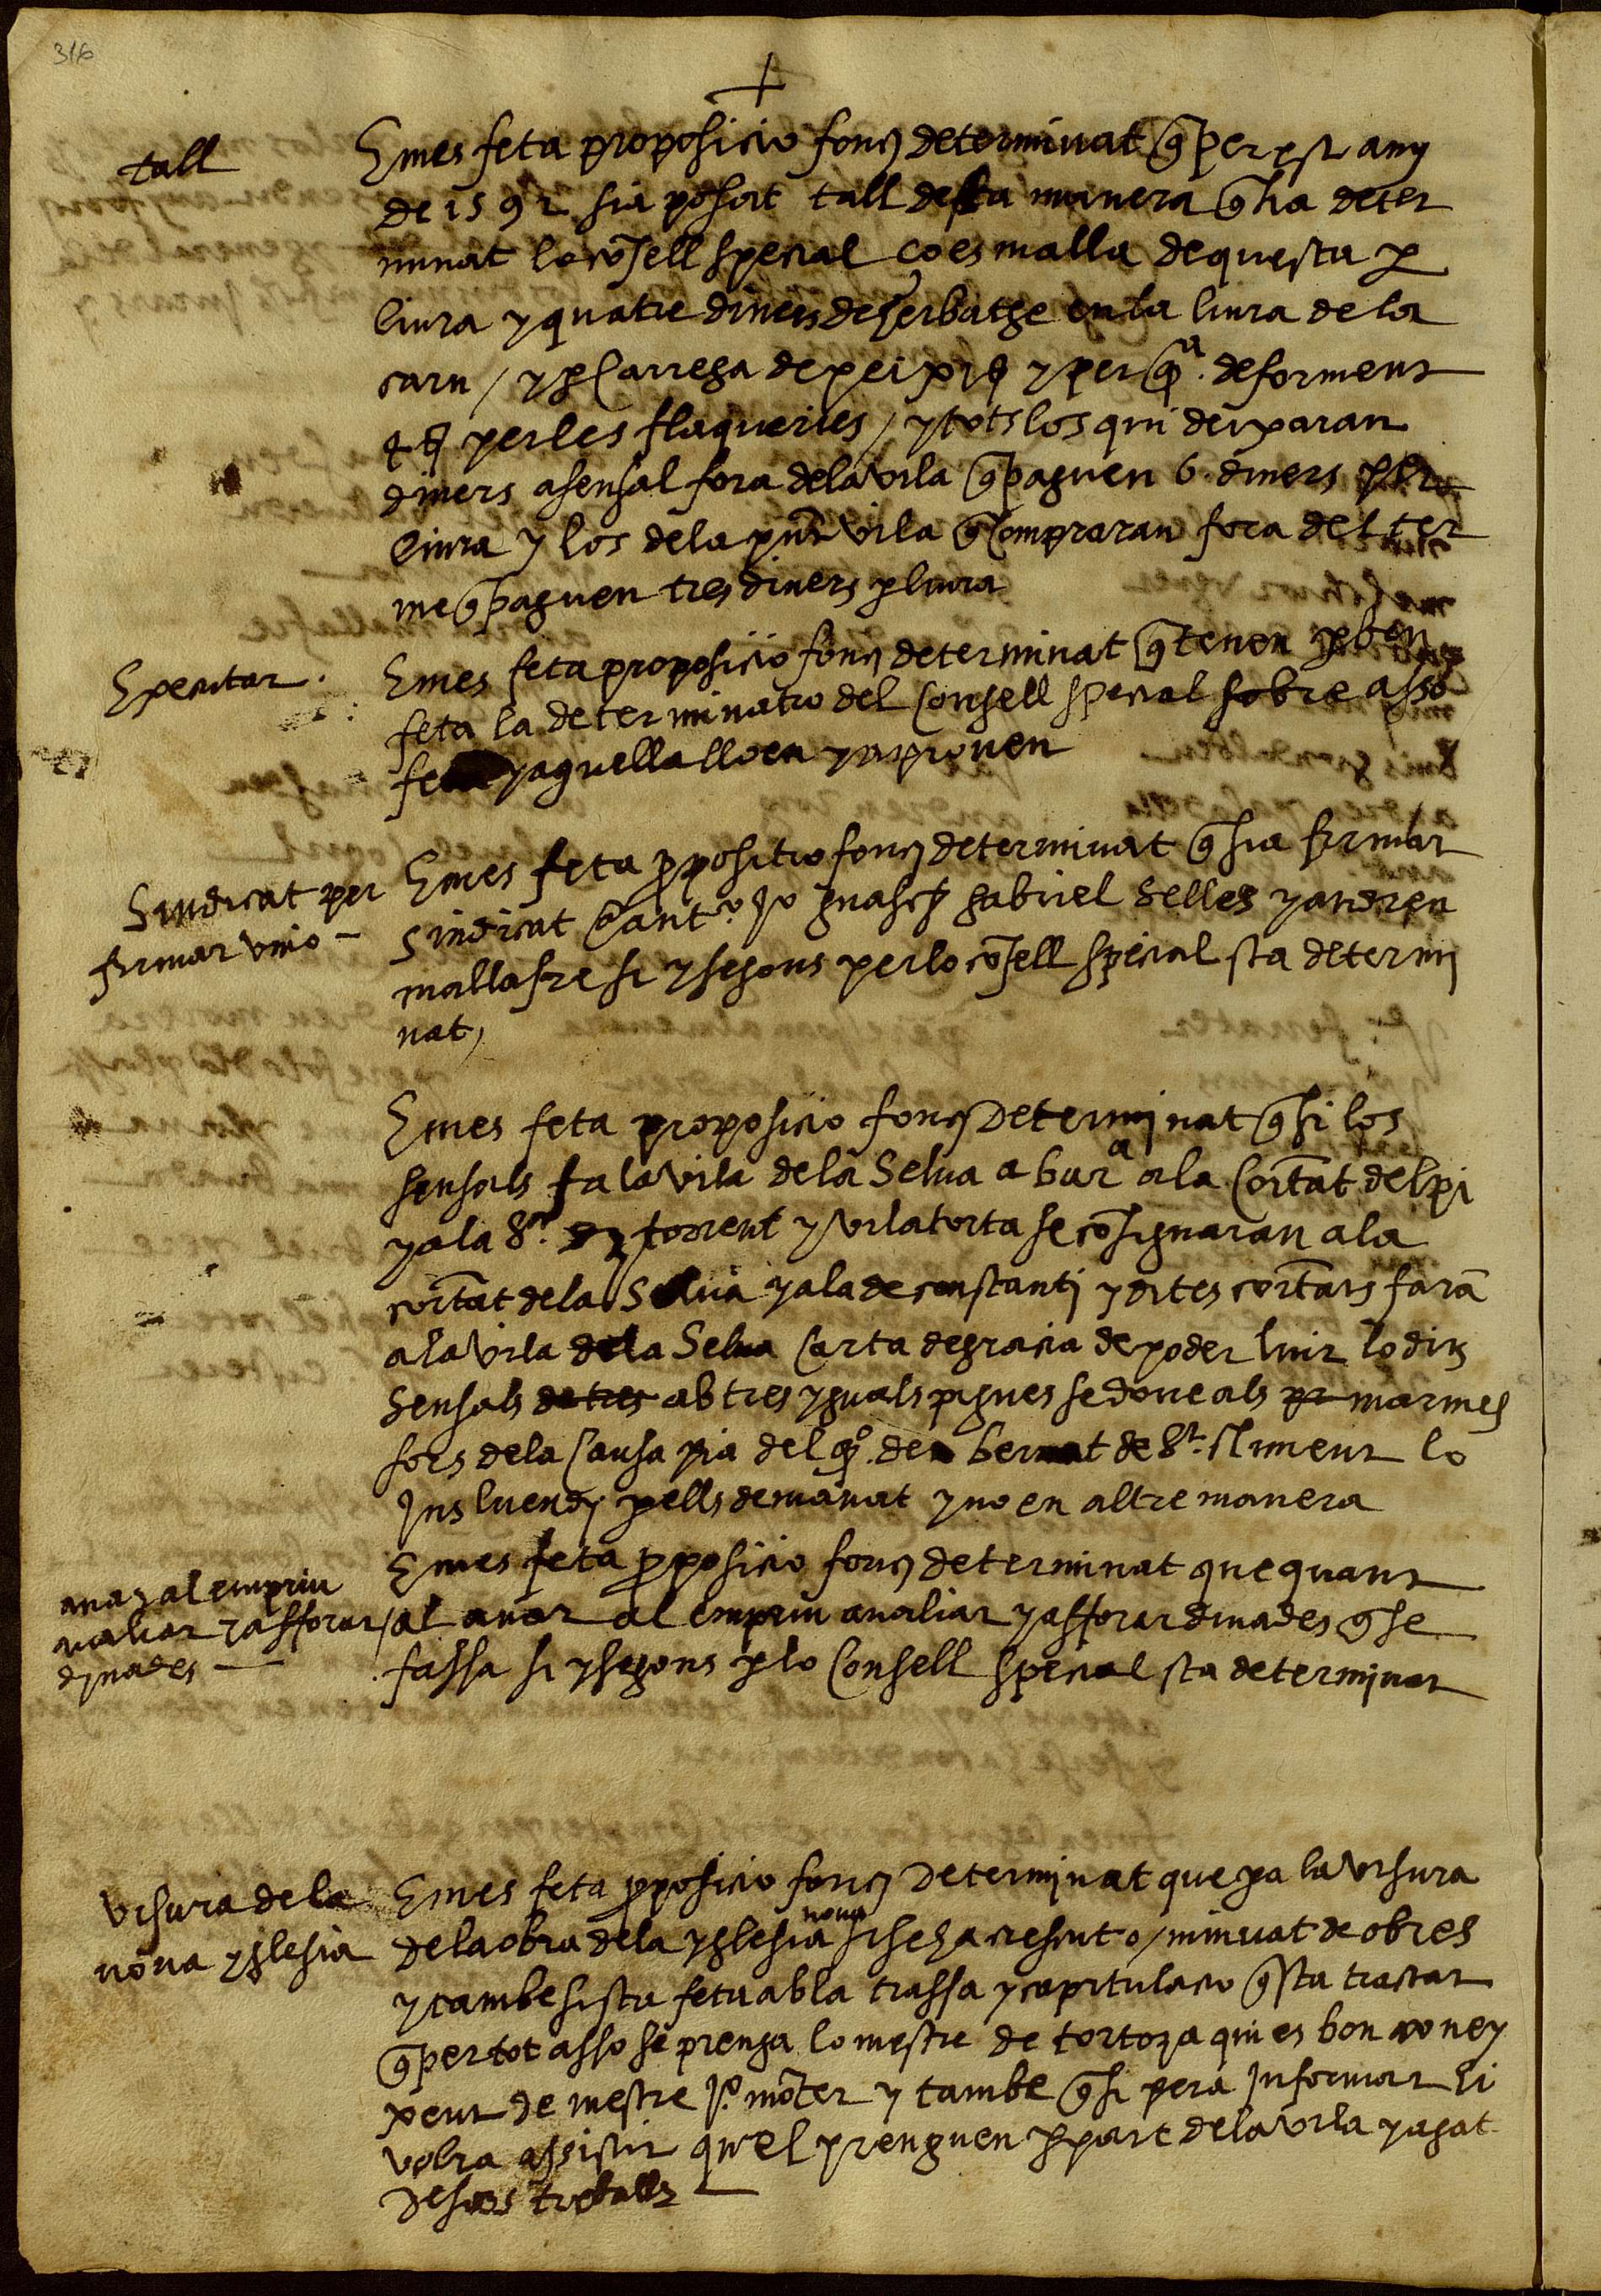 316
tall
E mes feta proposicio fonch determinat q̃ per est any
de 1592 sia posat tall desta manera q̃ ha deter
minat lo cõsell special ço es malla de questa p̱
liura y quatre diners de herbatge en la liura de la
carn / y p̱ Carrega de peix y per q̃ᵃ. de forment
per les flaqueries / y tots los qui deixaran
diners a sensal fora de la vila q̃ paguen 6 diners
liura y los de la pñt vila q̃ Compraran fora del ter
me q̃ paguen tres diners p̱ liura
Executar.
E mes feta proposicio fonch determinat q̃ tenen p̱ ben
feta la determinatio del Consell special sobre asso
feta y aquella lloen y aproven
Sindicat per
firmar unio —
E mes feta p̱positio fonch determinat q̃ sia firmat
Sindicat a antº. Jº guasch gabriel Selles y andreu
mallafre si y segons per lo cõsell special sta determi
nat,
E mes feta proposicio fonch Determinat q̃ si los
sensals fa la vila de la Selva a barᵃ a la Cõrtat del pi
y a la Sʳᵃ. de torrent y vilatorta se cõsignaran a la
cõrtat de la Selva y a la de constanti y dites cõrtats farã
a la vila de la Selva Carta de gracia de poder luir lo dits
Sensals de tres ab tres yguals pagues se done als pr marmes
sors de la Causa pia del qº. de bernat de Sᵗ. Climent lo
Jus luendi p̱ ells demanat y no en altre manera
anar al empriu
avaliar y afforar
dinades —
E mes feta p̱posicio fonch determinat que quant
/al anar al empriu avaliar y afforar dinades q̃ se
fassa si y segons p̱ lo Consell special sta determinat
Visura de la
nova yglesia
E mes feta p̱posicio fonch Determinat que p̱a la visura
de la obra de la yglesia nova si se ha crescut o / minuat de obres
y tambe si sta feta ab la trassa y capitulacio q̃ sta tractat
q̃ per tot asso se prenga lo mestre de tortoza qui es bon coney
xent de mestre Jº. mõter y tambe q̃ si pera Informar hi
volra assistir qu'el prenguen p̱ part de la vila pagat
De sos treballs